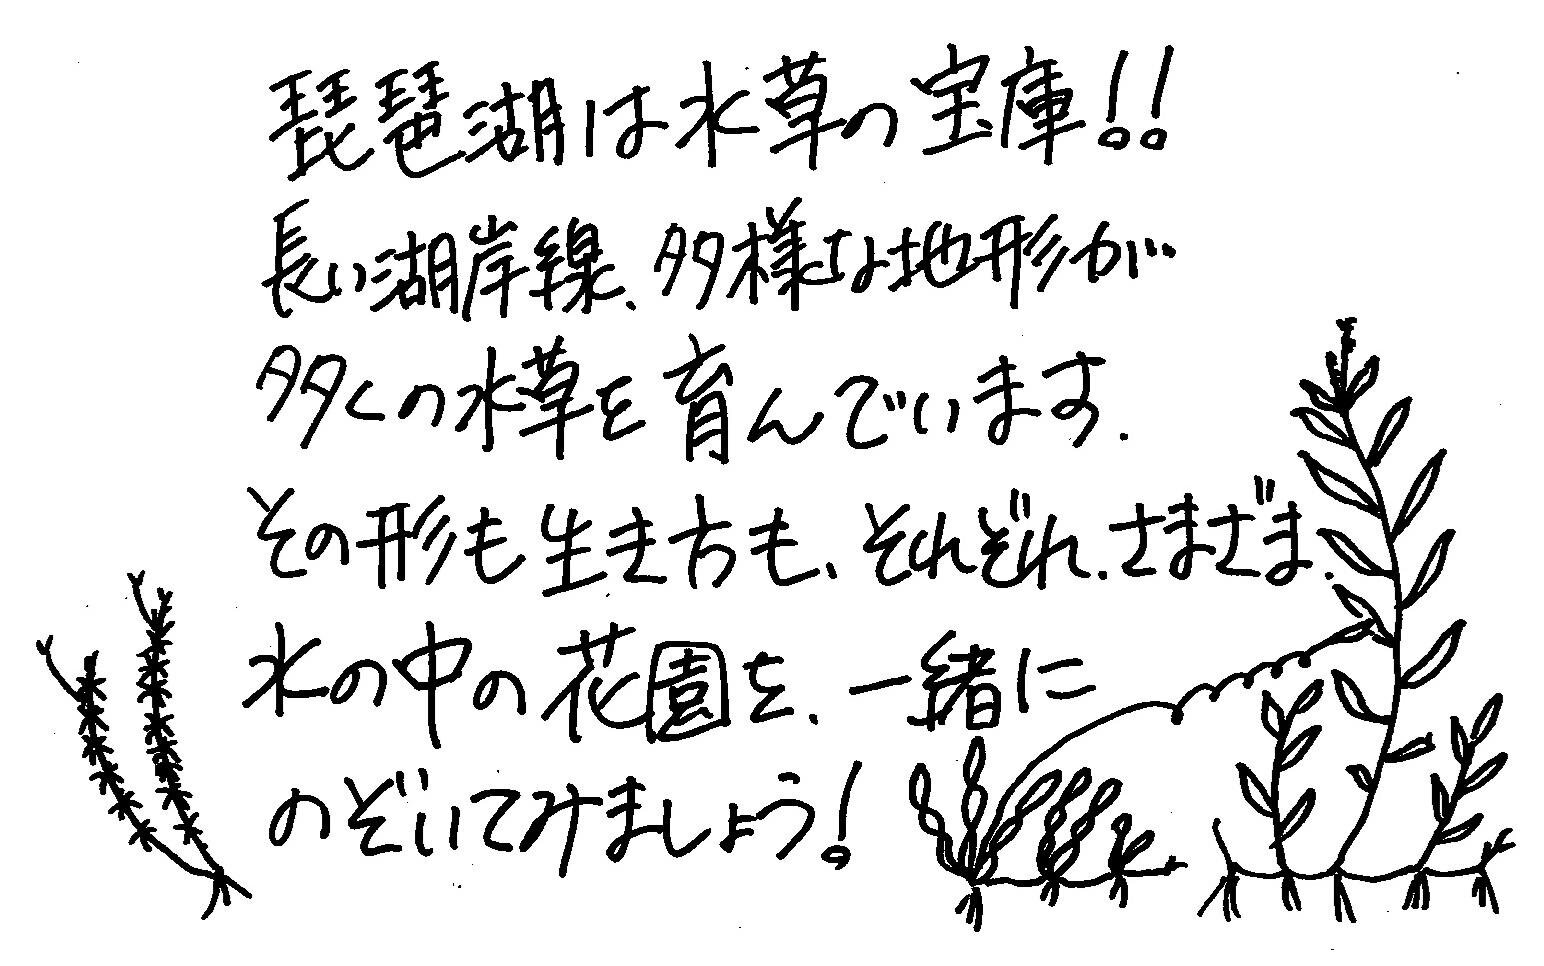 琵琶湖は水草の宝庫!!
長い湖岸線、多様な地形が
多くの水草を育んでいます.
その形も生き方も、それぞれ.さまざま.
水の中の花園を、一緒に
のぞいてみましょう!